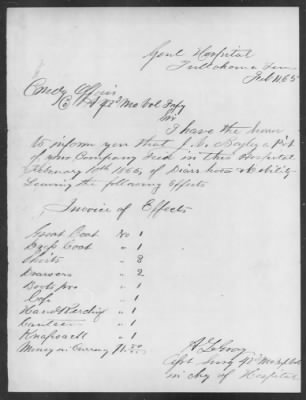 Genl Hospital
Tullahoma Ten
Feb 11 65
Comdg Officer
Co A 42d Mo Vol Infy
Sir
I have the honor
to inform you that J. N. Bayly a Pvt
of your Company died in this Hospital
February 10th 1865, of Diarrhoea & debility
Leaving the following Effects
Invoice of Effects
Great Coat No 1
Dress Coat " 1
Shirts " 3
Drawers " 2
Boots prs " 1
Cap " 1
Handkerchief " 1
Canteen " 1
Knapsack " 1
Money in Currency $1.50
Asst Surg 42d Mo Inf Vols
in chg of Hospital